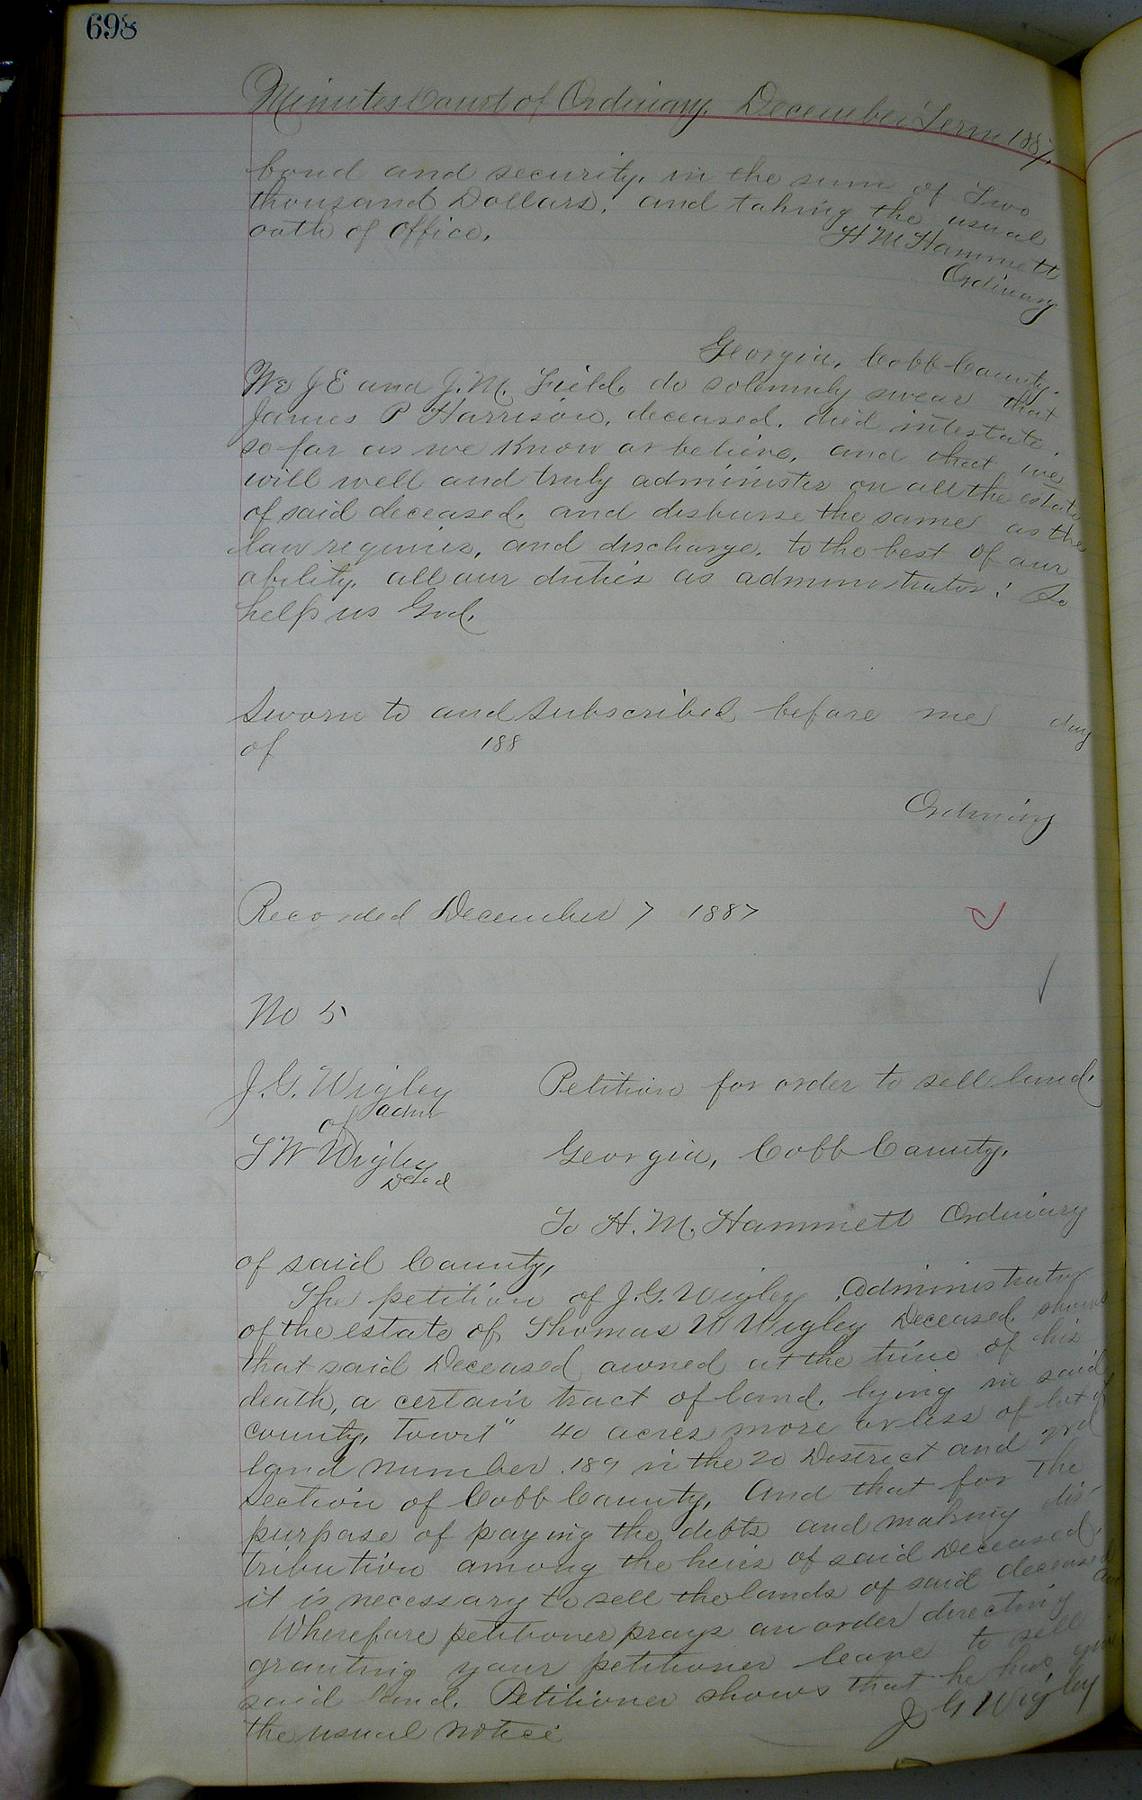 698
Minutes Court of Ordinary, December Term 1887.
bond and security, in the sum of Two
thousand Dollars, and taking the usual
oath of office.
H M Hammett
Ordinary
Georgia, Cobb County.
We J E and J. M. Field, do solemnly swear that
James P Harrison, deceased, died intestate,
so far as we know or believe, and that we
will well and truly administer on all the estate
of said deceased, and disburse the same as the
law requires, and discharge, to the best of our
ability, all our duties as administrator: So
help us God.
Sworn to and subscribed before me day
of 188
Ordinary
Recorded December 7 1887
No 5
J. G. Wigley Petition for order to sell land.
admr
of
T W Wigley Georgia, Cobb County.
Decd
To H. M. Hammett Ordinary
of said County,
The petition of J. G. Wigley Administrator
of the estate of Thomas W Wigley Deceased shows
that said Deceased owned at the time of his
death, a certain tract of land, lying in said
county, towit" 40 acres more or less of lot of
land number 189 in the 20 District and 2nd
Section of Cobb County, And that for the
purpose of paying the debts and making dis-
tribution among the heirs of said Deceased,
it is necessary to sell the lands of said deceased
Wherefore petitioner prays an order directing and
granting your petitioner leave to sell
said land. Petitioner shows that he has given
the usual notice
J G Wigley